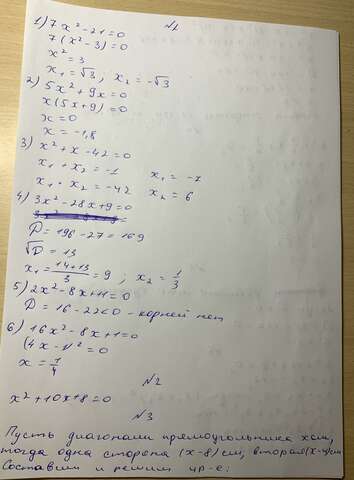 №1
1) 7x² - 21 = 0
7(x² - 3) = 0
x² = 3
x₁ = √3 ; x₂ = -√3
2) 5x² + 9x = 0
x(5x + 9) = 0
x = 0
x = -1,8
3) x² + x - 42 = 0
x₁ + x₂ = -1 x₁ = -7
x₁ · x₂ = -42 x₂ = 6
4) 3x² - 28x + 9 = 0
D = 196 - 27 = 169
√D = 13
x₁ = 14+13/3 = 9 ; x₂ = 1/3
5) 2x² - 8x + 11 = 0
D = 16 - 22 < 0 - корней нет
6) 16x² - 8x + 1 = 0
(4x - 1)² = 0
x = 1/4
№2
x² + 10x + 8 = 0
№3
Пусть диагонали прямоугольника x см,
тогда одна сторона (x-8) см, вторая (x-4) см
Составим и решим ур-е: